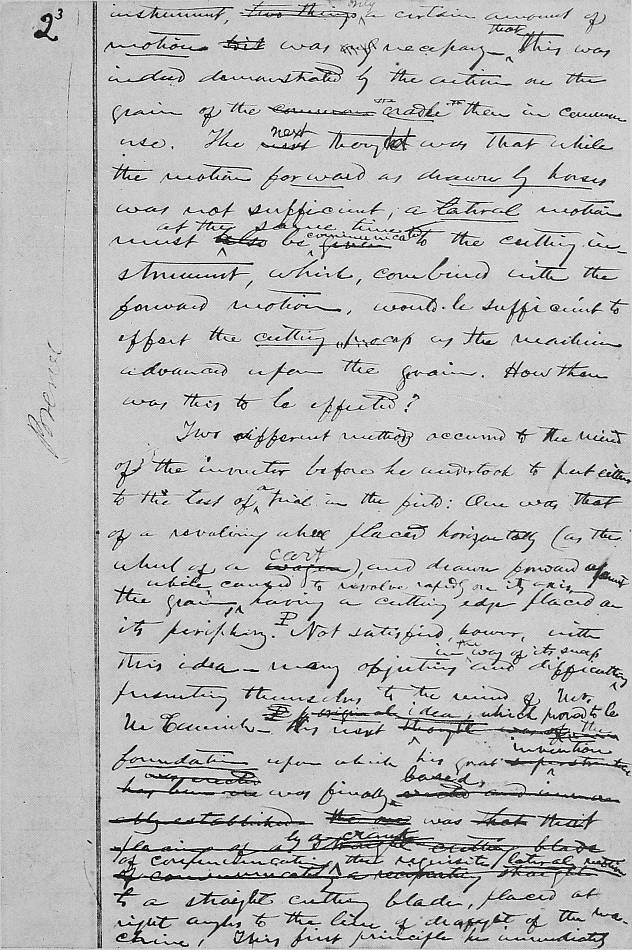 2³
instrument, two things, only a certain amount of
motion was necessary — that this was
indeed demonstrated by the action on the
grain of the common "cradle" then in common
use. The next thought was that while
the motion forward as drawn by horses
was not sufficient, a lateral motion
at the same time communicated
must also be given to the cutting in-
strument, which, combined with the
forward motion, would be sufficient to
effect the cutting process as the machine
advanced upon the grain. How then
was this to be effected?
Two different methods occurred to the mind
of the inventor before he undertook to put either
to the test of a trial in the field: One was that
of a revolving wheel placed horizontally (as the
cart
wheel of a wagon), and drawn forward against
while caused to revolve rapidly on its axis
the grain, having a cutting edge placed on
its periphery. Not satisfied, however, with
in the way of its success
this idea — many objections and difficulties
presenting themselves to the mind of Mr.
original idea, which proved to be
McCormick — his next thought was
the invention
foundation upon which his great
based,
was finally
established was that
placing of a straight cutting blade
by a crank
of communicating the requisite lateral motion
of communicating a reciprocating straight
to a straight cutting blade, placed at
right angles to the line of draught of the ma-
chine. This first principle he immediately